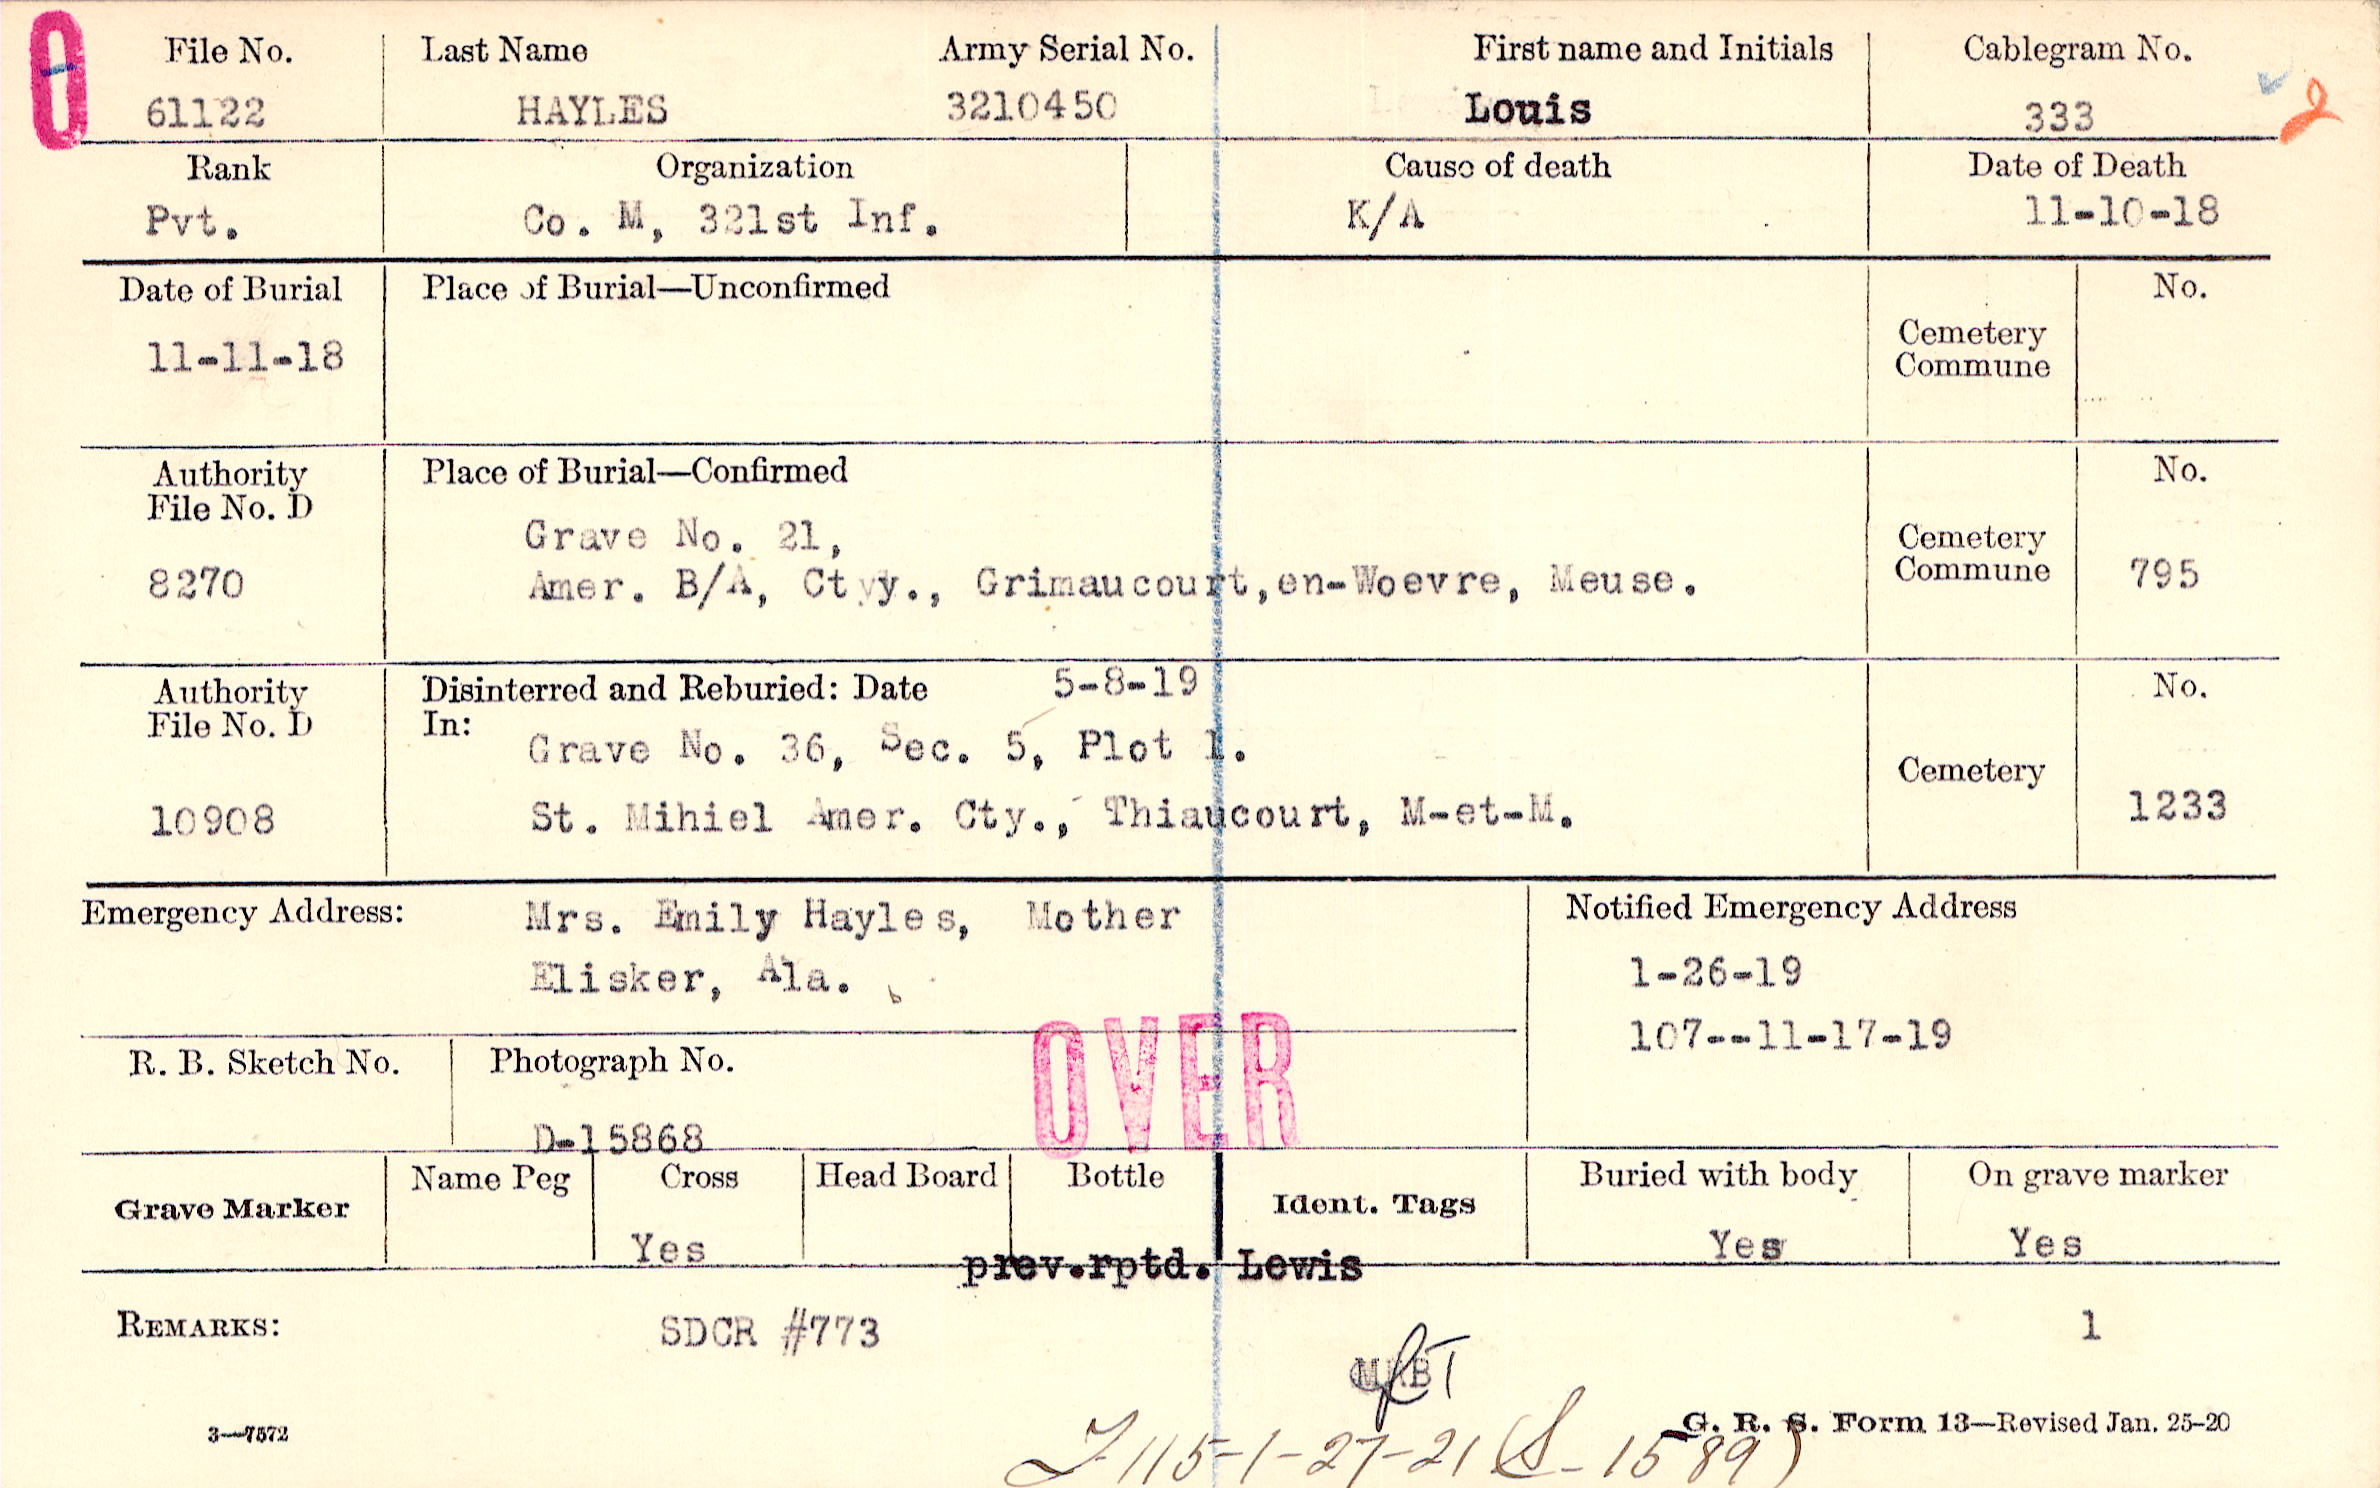 File No. Last Name Army Serial No. First name and Initials Cablegram No.
61122 HAYLES 3210450 Louis 333 2
Rank Organization Cause of death Date of Death
Pvt. Co. M, 321st Inf. K/A 11-10-18
Date of Burial Place of Burial—Unconfirmed No.
11-11-18
Cemetery
Commune
Authority Place of Burial—Confirmed No.
File No. D
Grave No. 21,
8270 Amer. B/A, Ctyy., Grimaucourt,en-Woevre, Meuse.
Cemetery
Commune 795
Authority Disinterred and Reburied: Date 5-8-19 No.
File No. D In:
Grave No. 36, Sec. 5, Plot 1.
Cemetery
10908 St. Mihiel Amer. Cty., Thiaucourt, M-et-M. 1233
Emergency Address: Mrs. Emily Hayles, Mother
Elisker, Ala.
Notified Emergency Address
1-26-19
107--11-17-19
OVER
R. B. Sketch No. Photograph No.
D-15868
Grave Marker Name Peg Cross Head Board Bottle Ident. Tags Buried with body On grave marker
Yes Yes Yes
prev.rptd. Lewis
REMARKS: SDCR #773 1
3—7572 G. R. S. Form 13—Revised Jan. 25-20
115-1-27-21 (S-1589)